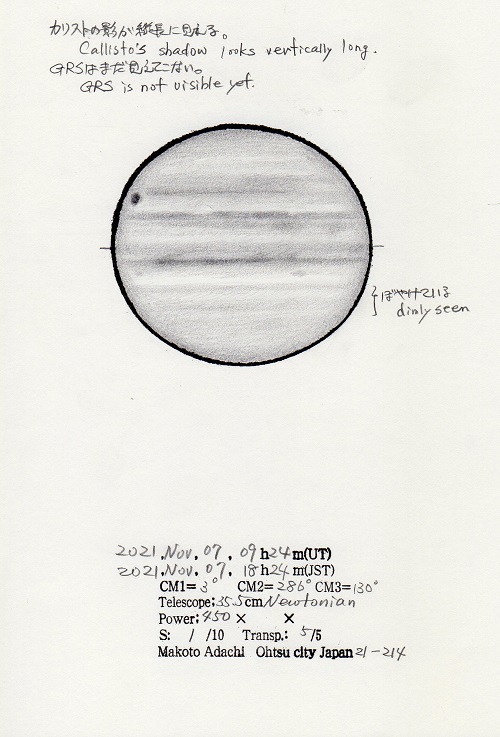 カリストの影が縦長に見える。
Callisto's shadow looks vertically long.
GRSはまだ見えてこない。
GRS is not visible yet.
ぼやけている
dimly seen
2021.Nov.07, 09h24m(UT)
2021.Nov.07, 18h24m(JST)
CM1=3° CM2=286° CM3=130°
Telescope;35.5cm Newtonian
Power;450× ×
S: / /10 Transp.: 5/5
Makoto Adachi Ohtsu city Japan 21-214